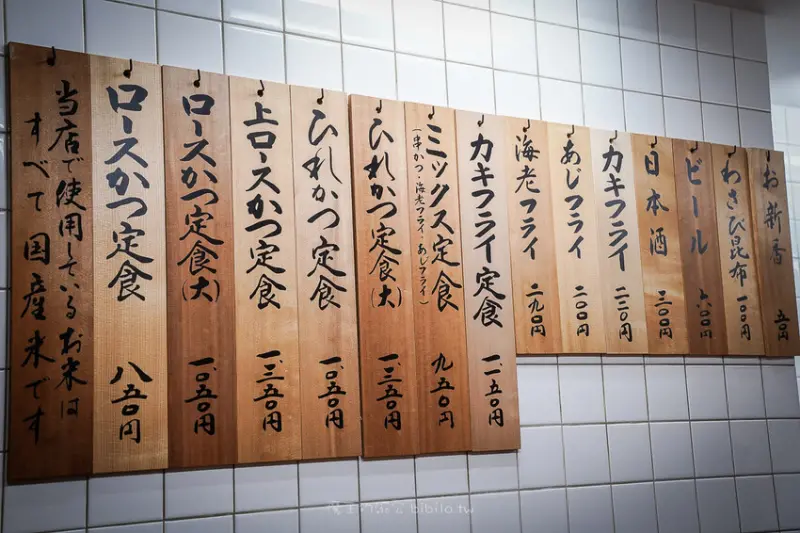 お新香 五〇円
わさび昆布 一〇〇円
ビール 六〇〇円
日本酒 三〇〇円
カキフライ 二二〇円
あじフライ 二〇〇円
海老フライ 二九〇円
カキフライ定食 一、一五〇円
ミックス定食 九五〇円
(串かつ・海老フライ・あじフライ)
ひれかつ定食(大) 一、三五〇円
ひれかつ定食 一、〇五〇円
上ロースかつ定食 一、三五〇円
ロースかつ定食(大) 一、〇五〇円
ロースかつ定食 八五〇円
当店で使用しているお米は
すべて国産米です
bibilo.tw